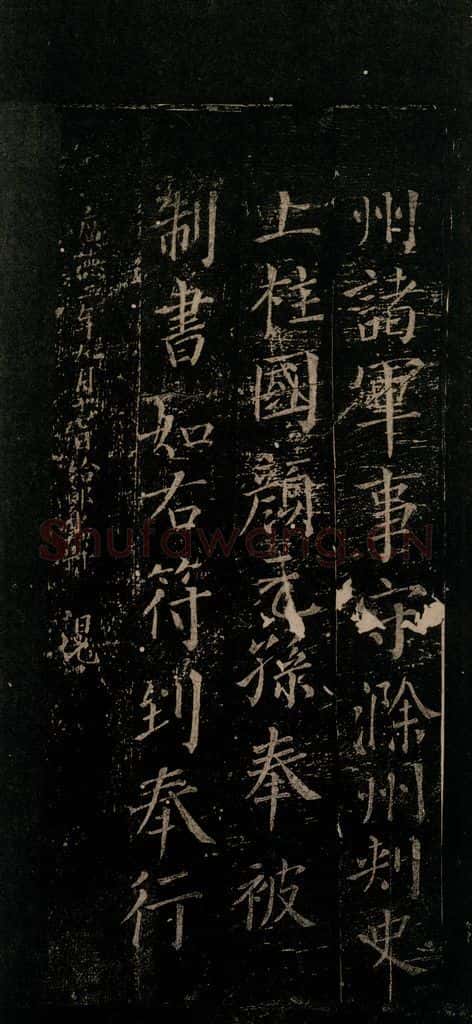 州諸軍事守滁州刾史
上柱國顏元孫奉被
制書如右符到奉行
年九月
混
Shufawang.CN